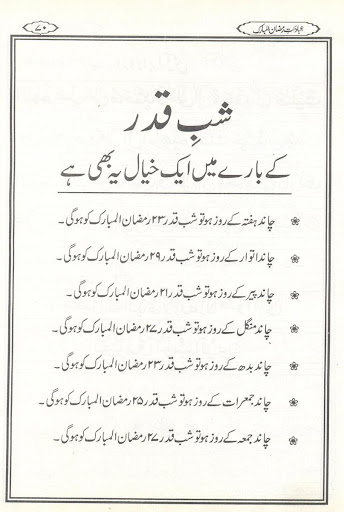 عبادات رمضان المبارک
۷۰
شبِ قدر
کے بارے میں ایک خیال یہ بھی ہے
چاند ہفتہ کے روز ہو تو شب قدر ۲۳ رمضان المبارک کو ہوگی۔
چاند اتوار کے روز ہو تو شب قدر ۲۹ رمضان المبارک کو ہوگی۔
چاند پیر کے روز ہو تو شب قدر ۲۱ رمضان المبارک کو ہوگی۔
چاند منگل کے روز ہو تو شب قدر ۲۷ رمضان المبارک کو ہوگی۔
چاند بدھ کے روز ہو تو شب قدر ۲۳ رمضان المبارک کو ہوگی۔
چاند جمعرات کے روز ہو تو شب قدر ۲۵ رمضان المبارک کو ہوگی۔
چاند جمعہ کے روز ہو تو شب قدر ۲۷ رمضان المبارک کو ہوگی۔